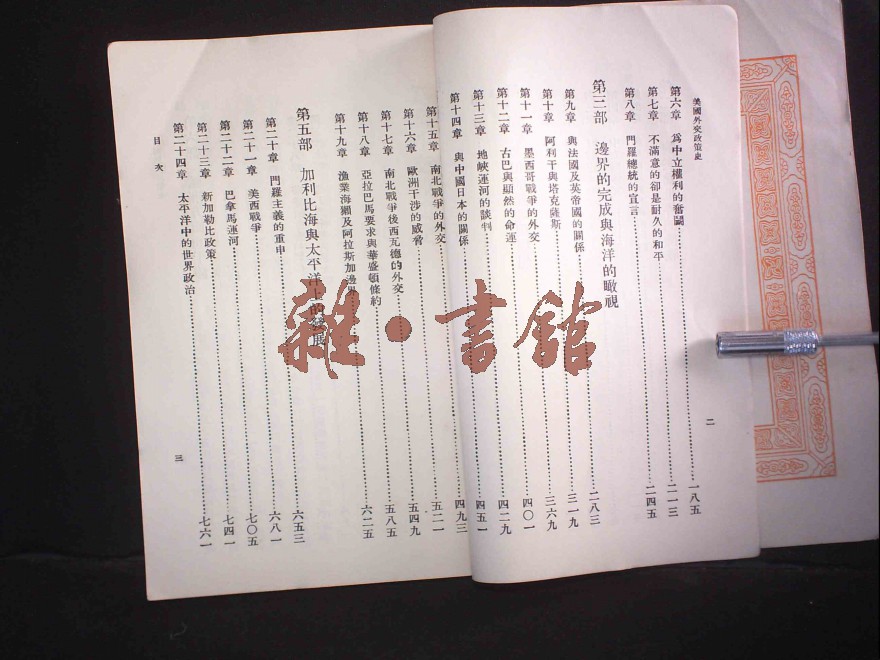 美國外交政策史
第六章 爲中立權利的奮鬭……一八五
第七章 不滿意的卻是耐久的和平……二一三
第八章 門羅總統的宣言……二四五
第三部 邊界的完成與海洋的瞰視
第九章 與法國及英帝國的關係……二八三
第十章 阿利干與塔克薩斯……三一九
第十一章 墨西哥戰爭的外交……三六九
第十二章 古巴與顯然的命運……四〇一
第十三章 地峽運河的談判……四二九
第十四章 與中國日本的關係……四五一
二
第十五章 南北戰爭的外交……四九三
第十六章 歐洲干涉的威脅……五二一
第十七章 南北戰爭後西瓦德的外交……五四九
第十八章 亞拉巴馬要求與華盛頓條約……五八五
第十九章 漁業海獺及阿拉斯加邊界……六二五
第五部 加利比海與太平洋上的發展
第二十章 門羅主義的重申……六五三
第二十一章 美西戰爭……六八一
第二十二章 巴拿馬運河……七〇五
第二十三章 新加勒比政策……七四一
第二十四章 太平洋中的世界政治……七六一
目次
三
雜·書館